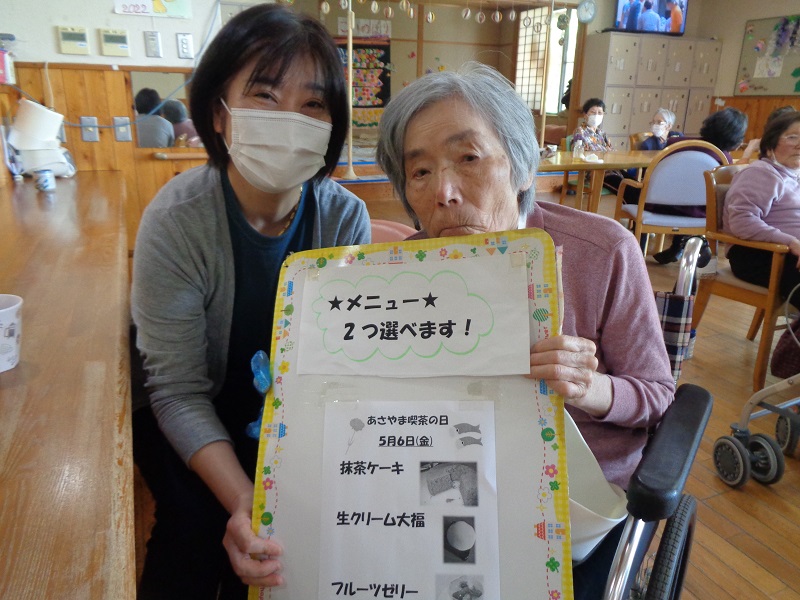 ★メニュー★
2つ選べます!
あさやま喫茶の日
5月6日(金)
抹茶ケーキ
生クリーム大福
フルーツゼリー